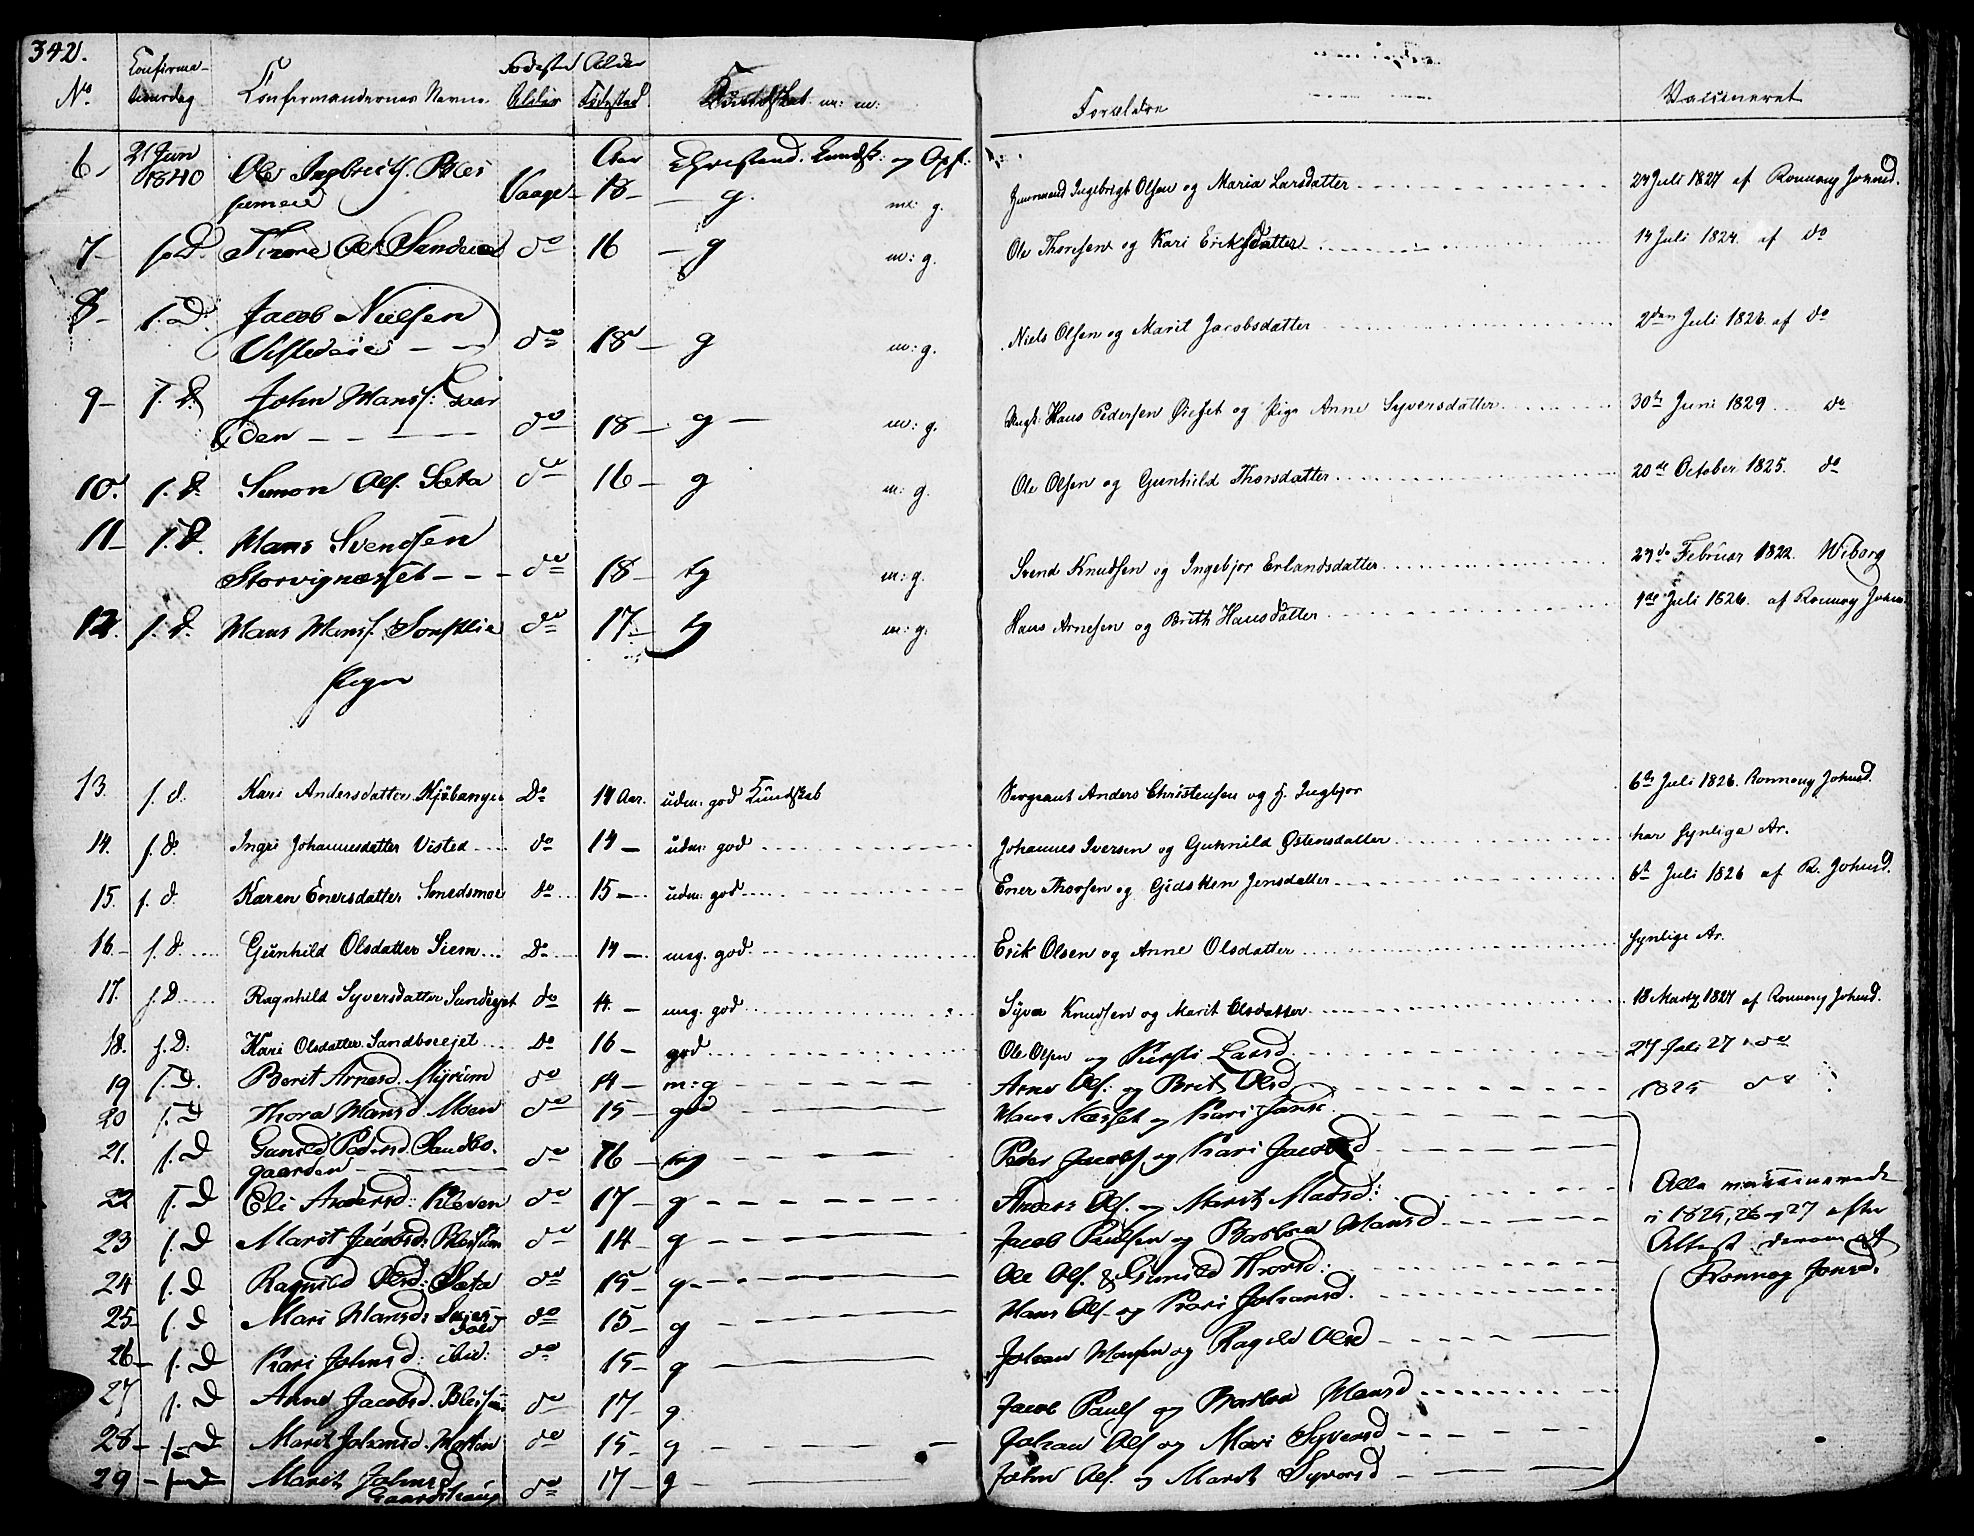 342.
No. Confirma- tionsdag Confirmandernes Navne. Fødested Alder Alder Fødested Kundskab m: m: Forældre Vaccineret
6 21 Jun 1840 Ole Ingbreth. Vaage 18 Christend. Kundsk: og Opf: g. m: g. Ingebrigt Olsen og Maria Larsdatter 24 Juli 1827 af Ronnoug Johnsd.
7 s. D. Thore Ols. Sandeiet do 16 g m: g. Ole Thoresen og Kari Eriksdatter 14 Juli 1824. af do
8 s. D. Jacob Nielsen
Vistedeie do 18 g m: g. Niels Olsen og Marit Jacobsdatter 2den Juli 1826. af do
9 s. D. John Hanss:
den do 18 g m: g. Ungk: Hans Pedersen og Pige Anne Syversdatter 30te Juni 1829 do
10. s. D. Simon Ols. Sæta do 16 g m: g. Ole Olsen og Gunhild Thorsdatter 20de October 1825. do
11 s. D. Hans Svendsen
Storvignæsset do 18 tg m: g. Svend Knudsen og Ingebjor Erlandsdatter Februar 1822. Wiborg
12. s. D. Hans Hanss. do 17 tg m: g. Hans Arnesen og Brith Hansdatter 1ste Juli 1826. af Ronnoug Johnsd
Piger
13. s. d. Kari Andersdatter Do 14 Aar. udm: god Kundskab Sergeant Anders Christensen og H. Ingbjor 6te Juli 1826. Ronnoug Johnsd.
14. s. d. Ingri Johannesdatter Visted do 14 udm: god Johannes Iversen og Gunhild Østensdatter har synlige Ar.
15. s. d. Karen Enersdatter Smedsmoe do 15 udm: god Ener Thorsen og Gidsken Jensdatter 6te Juli 1826 af R. Johnsd.
16. s. d. Gunhild Olsdatter Siem Do 14 meg. god Erik Olsen og Anne Olsdatter synlige Ar.
17. s. D. Ragnhild Syversdatter Sundejet do 14. meg. god Syver Knudsen og Marit Olsdatter 18 Marty 1827 af Ronnoug Johnsd.
18. s. D: Kari Olsdatter Sandboejet Do 16 god Ole Olsen og Kirsti Larsd. 27 Juli 27 do
19 s. D. Berit Arnesd. Myrum do 14 m: g Arne Ols: og Brit Olsd 1825 do
20 s. D Thora Hansd. Moen do 15 god Hans Næsset og Kari
21. s. D Gunild Pedersd. Sandbo-
gaarden do 16 mg Peder Jacobs og Kari Jacobsd
22 s. D Eli Andersd: Kleven do 17 g Anders Ols. og Marit Madsd: Alle vaccinerede
23 s. D Marit Jacobsd: Blessum do 14 g Jacob Paulsen og Barbra Hansd i 1825, 26 og 27 efter
24 s. D Ragnild Olsd: Sæta do 15 g Ole Ols. & Gunild Thorsd: Attest derom af
25 s. D Mari Hansd: do 15 g Hans Ols og Kari Johansd. Ronnog Jonsd.
26 s. D Kari Johnsd: ibid: do 15 g Johan Hansen og Ragild Olsd
27 s. D Anne Jacobsd. Blessum do 17 g Jacob Pauls og Barbra Hansd
28 s. D Marit Johansd. do 15 g Johan Ols og Mari Syversd
29 s. D Marit Johnsd do 17 g John Ols. og Marit Syversd